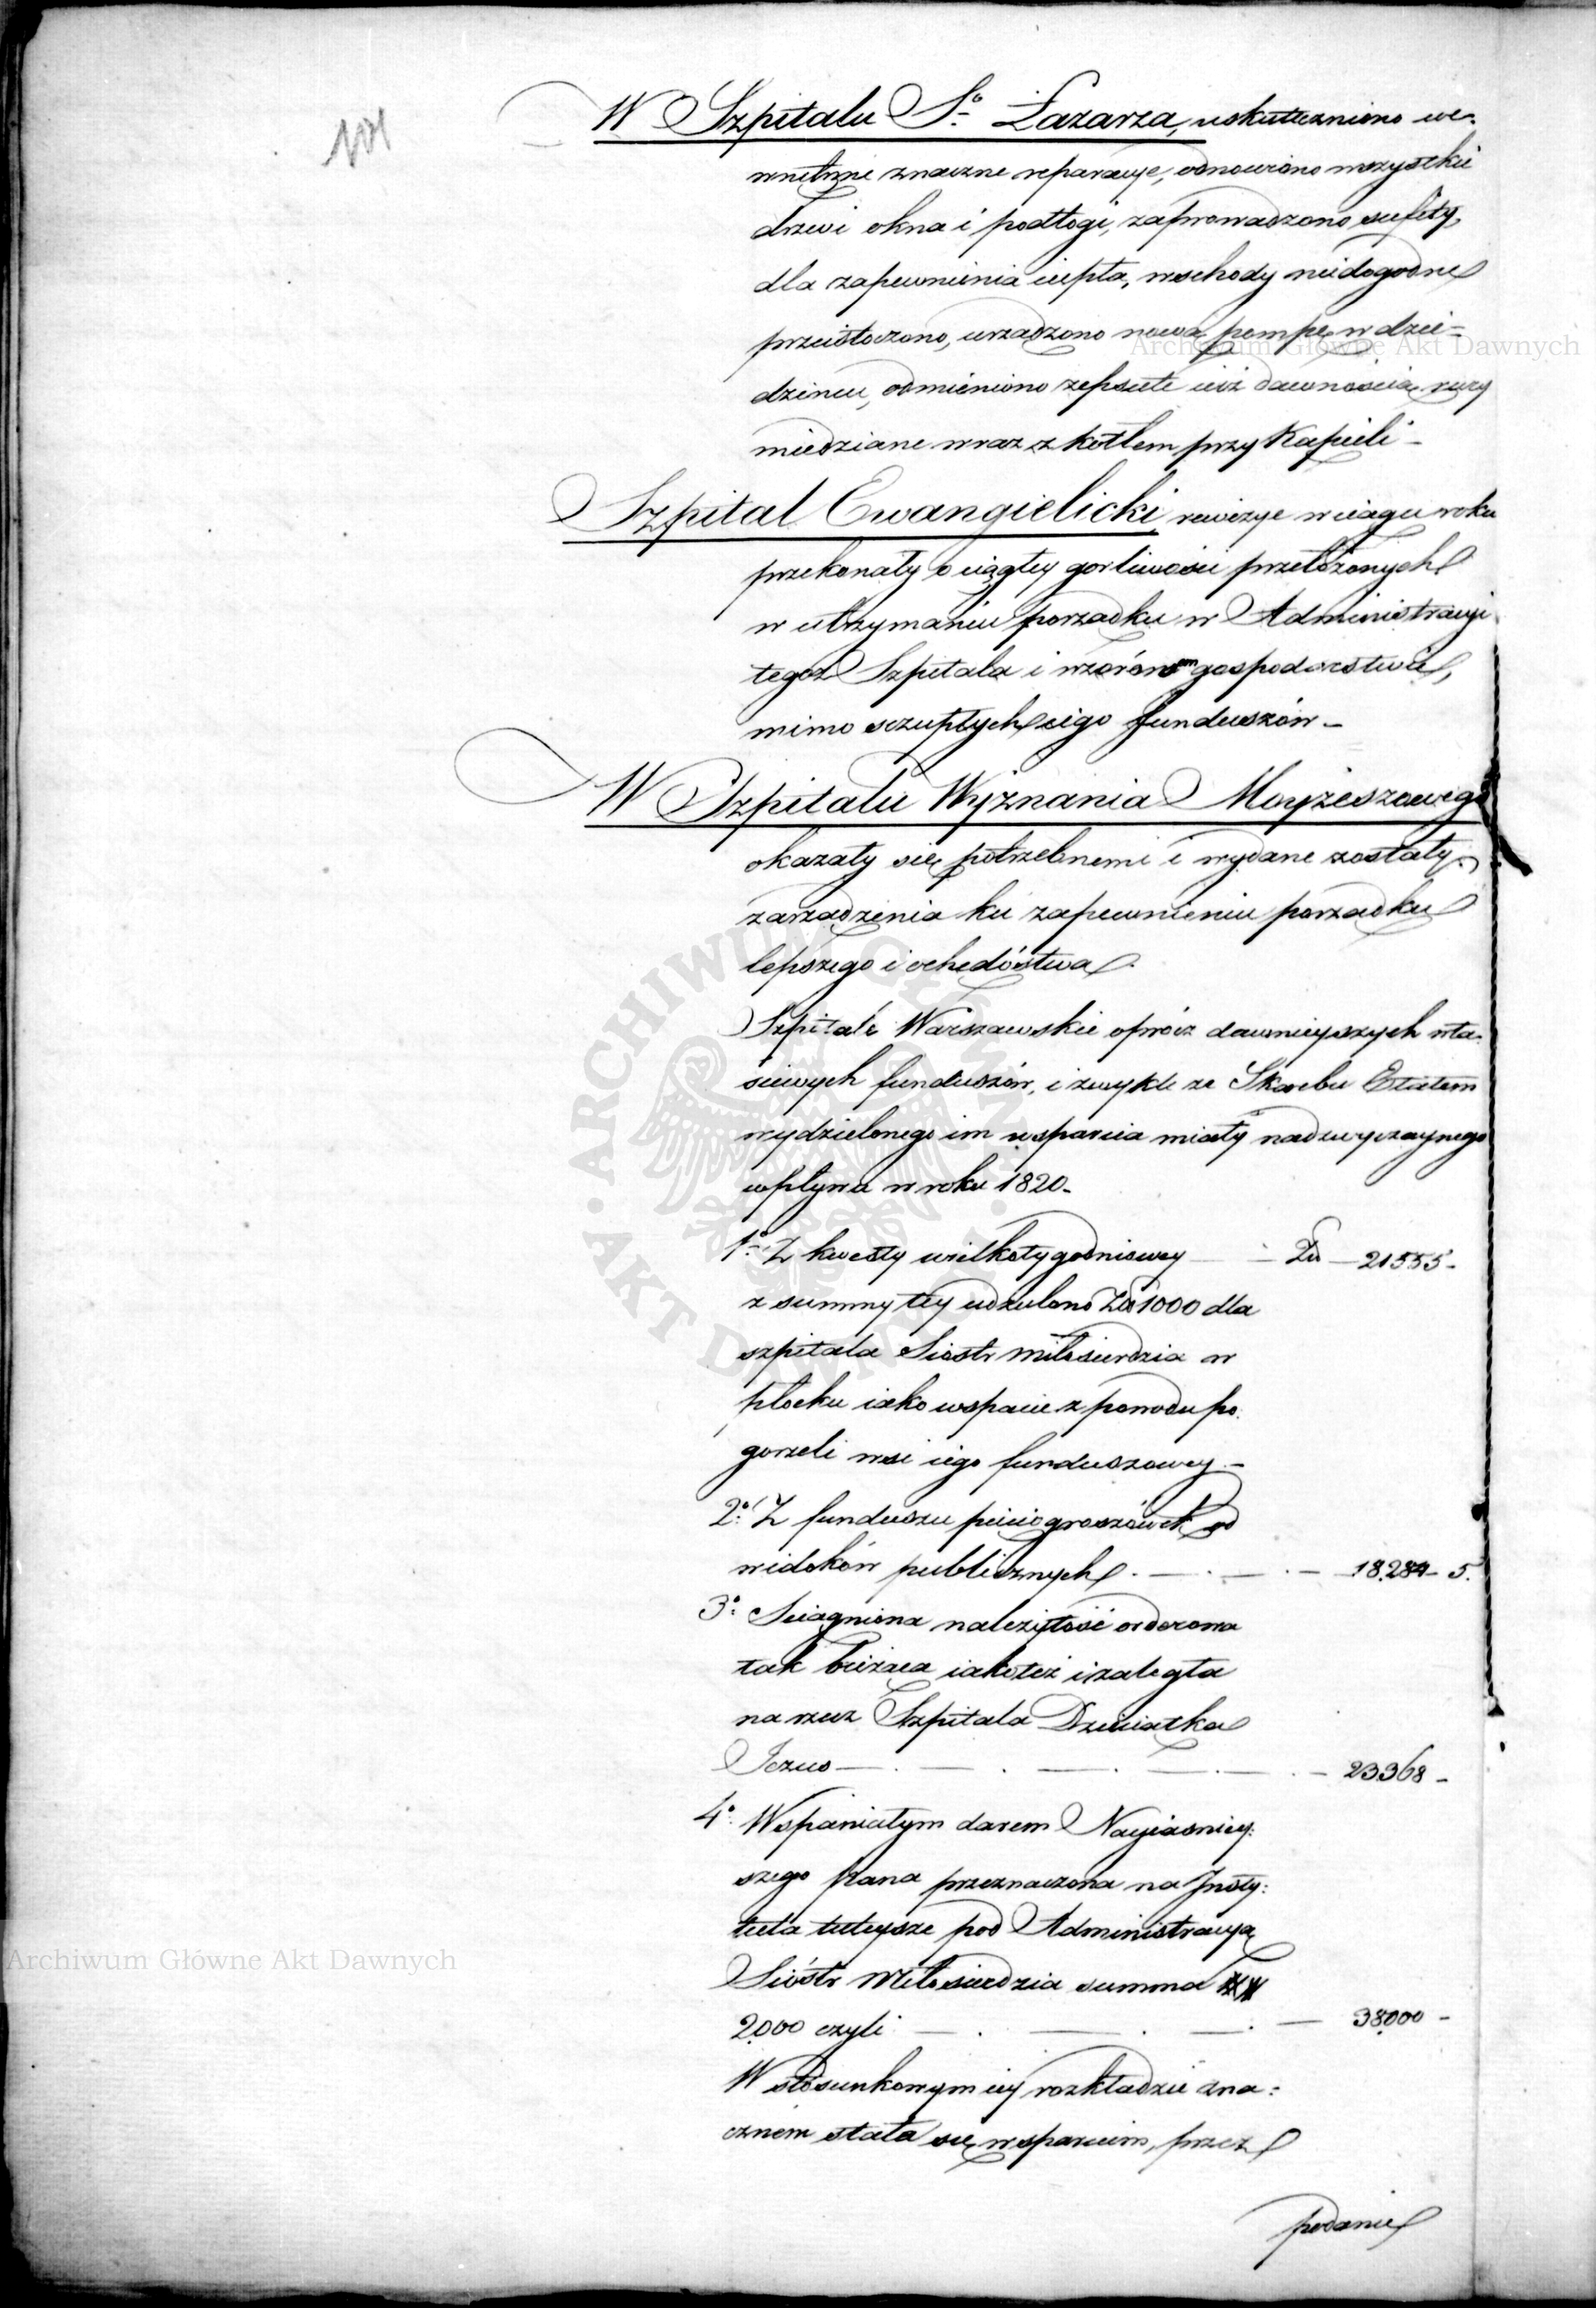 W Szpitalu Sº Łazarza, uskuteczniono we-
wnętrzne znaczne reparacye, odnowiono wszystkie
drzwi okna i podłogi, zaprowadzono sufity,
dla zapewnienia ciepła, wschody niedogodne
przeistoczono, urządzono nową pompę w dzie-
dzińcu, odmieniono zepsute iuż dawnością rury
miedziane wraz z kotłem przy Kąpieli -
Szpital Ewangielicki, rewizye w ciągu roku
przekonały o ciągłey gorliwości przełożonych
w utrzymaniu porządku w Administracyi
tegoż Szpitala i wzorowem gospodarstwa,
mimo szczupłych iego funduszów -
W Szpitalu Wyznania Moyżeszowego
okazały się potrzebnemi i wydane zostały
zarządzenia ku zapewnieniu porządku
lepszego i ochędóstwa.
Szpitale Warszawskie oprócz dawnieyszych wła-
ściwych funduszów, i zwykle ze Skarbu Etatem
wydzielonego im wsparcia miały nadzwyczaynego
wpływu w roku 1820 -
1º Z kwesty wielkotygodniowey - Zł - 21555 -
z summy tey udzielono Zł 1000 dla
szpitala Siostr Miłosierdzia w
Płocku iako wsparcie z powodu po-
gorzeli wsi iego funduszowey. -
2º Z funduszu pięciogroszówek od
widoków publicznych . - . - . - 18.284 - 5.
3º Sciągniona należytość orderowa
tak bieżąca iakoteż i zaległa
na rzecz Szpitala Dzieciątka
Jezus - . - . - . - . - 23368 -
4º Wspaniałym darem Nayiaśniey-
szego Pana przeznaczona na Insty-
tuta tuteysze pod Administracyą
Sióstr Miłosierdzia summa
2000 czyli - . - . - . - 38000 -
W stosunkowym iey rozkładzie zna-
cznem stała się wsparciem, przez
podanie
Archiwum Główne Akt Dawnych
Archiwum Główne Akt Dawnych
ARCHIWUM GŁÓWNE AKT DAWNYCH